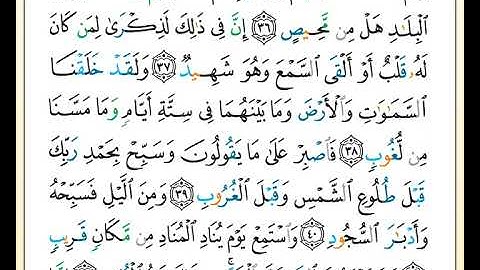 ٱلْبِلَٰدِ هَلْ مِن مَّحِيصٍ ٣٦ إِنَّ فِى ذَٰلِكَ لَذِكْرَىٰ لِمَن كَانَ
لَهُۥ قَلْبٌ أَوْ أَلْقَى ٱلسَّمْعَ وَهُوَ شَهِيدٌ ٣٧ وَلَقَدْ خَلَقْنَا
ٱلسَّمَٰوَٰتِ وَٱلْأَرْضَ وَمَا بَيْنَهُمَا فِى سِتَّةِ أَيَّامٍ وَمَا مَسَّنَا
مِن لُّغُوبٍ ٣٨ فَٱصْبِرْ عَلَىٰ مَا يَقُولُونَ وَسَبِّحْ بِحَمْدِ رَبِّكَ
قَبْلَ طُلُوعِ ٱلشَّمْسِ وَقَبْلَ ٱلْغُرُوبِ ٣٩ وَمِنَ ٱلَّيْلِ فَسَبِّحْهُ
وَأَدْبَٰرَ ٱلسُّجُودِ ٤٠ وَٱسْتَمِعْ يَوْمَ يُنَادِ ٱلْمُنَادِ مِن مَّكَانٍ قَرِيبٍ